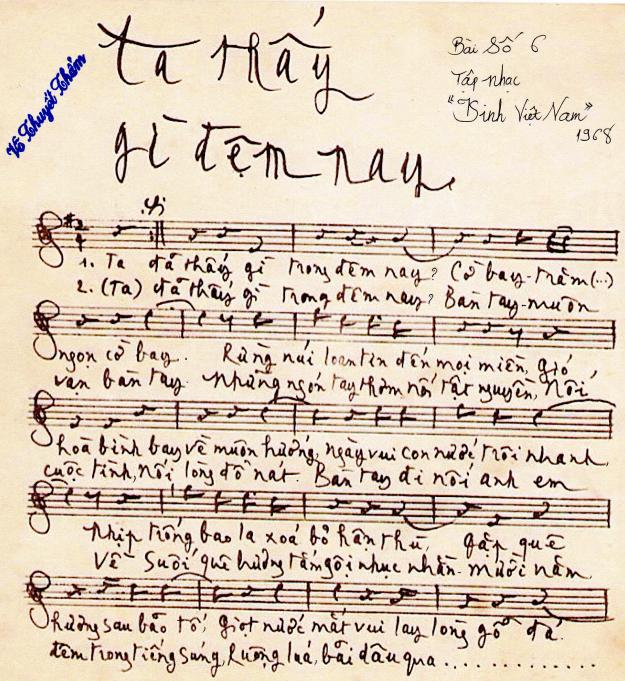 Ta thấy
gì đêm nay
Võ Thuyết Thẩm
Bài Số 6
Tập nhạc
"Kinh Việt Nam"
1968
1. Ta đã thấy gì trong đêm nay? Cờ bay trăm (...)
2. (Ta) đã thấy gì trong đêm nay? Bàn tay muôn
ngọn cờ bay. Rừng núi loan tin đến mọi miền, Gió
vạn bàn tay. Những ngón tay thơm nối tật nguyền, Nối
hoà bình bay về muôn hướng, ngày vui con nước trôi nhanh,
cuộc tình, nối lòng đổ nát. Bàn tay đi nối anh em
Nhịp trống bao la xoá bỏ hận thù, gặp quê
Về suối quê hương tắm gội nhục nhằn. Mười năm
hương sau bão tố, Giọt nước mắt vui lay lòng gỗ đá.
đêm trong tiếng súng, Ruộng lúa, bãi dâu qua ............